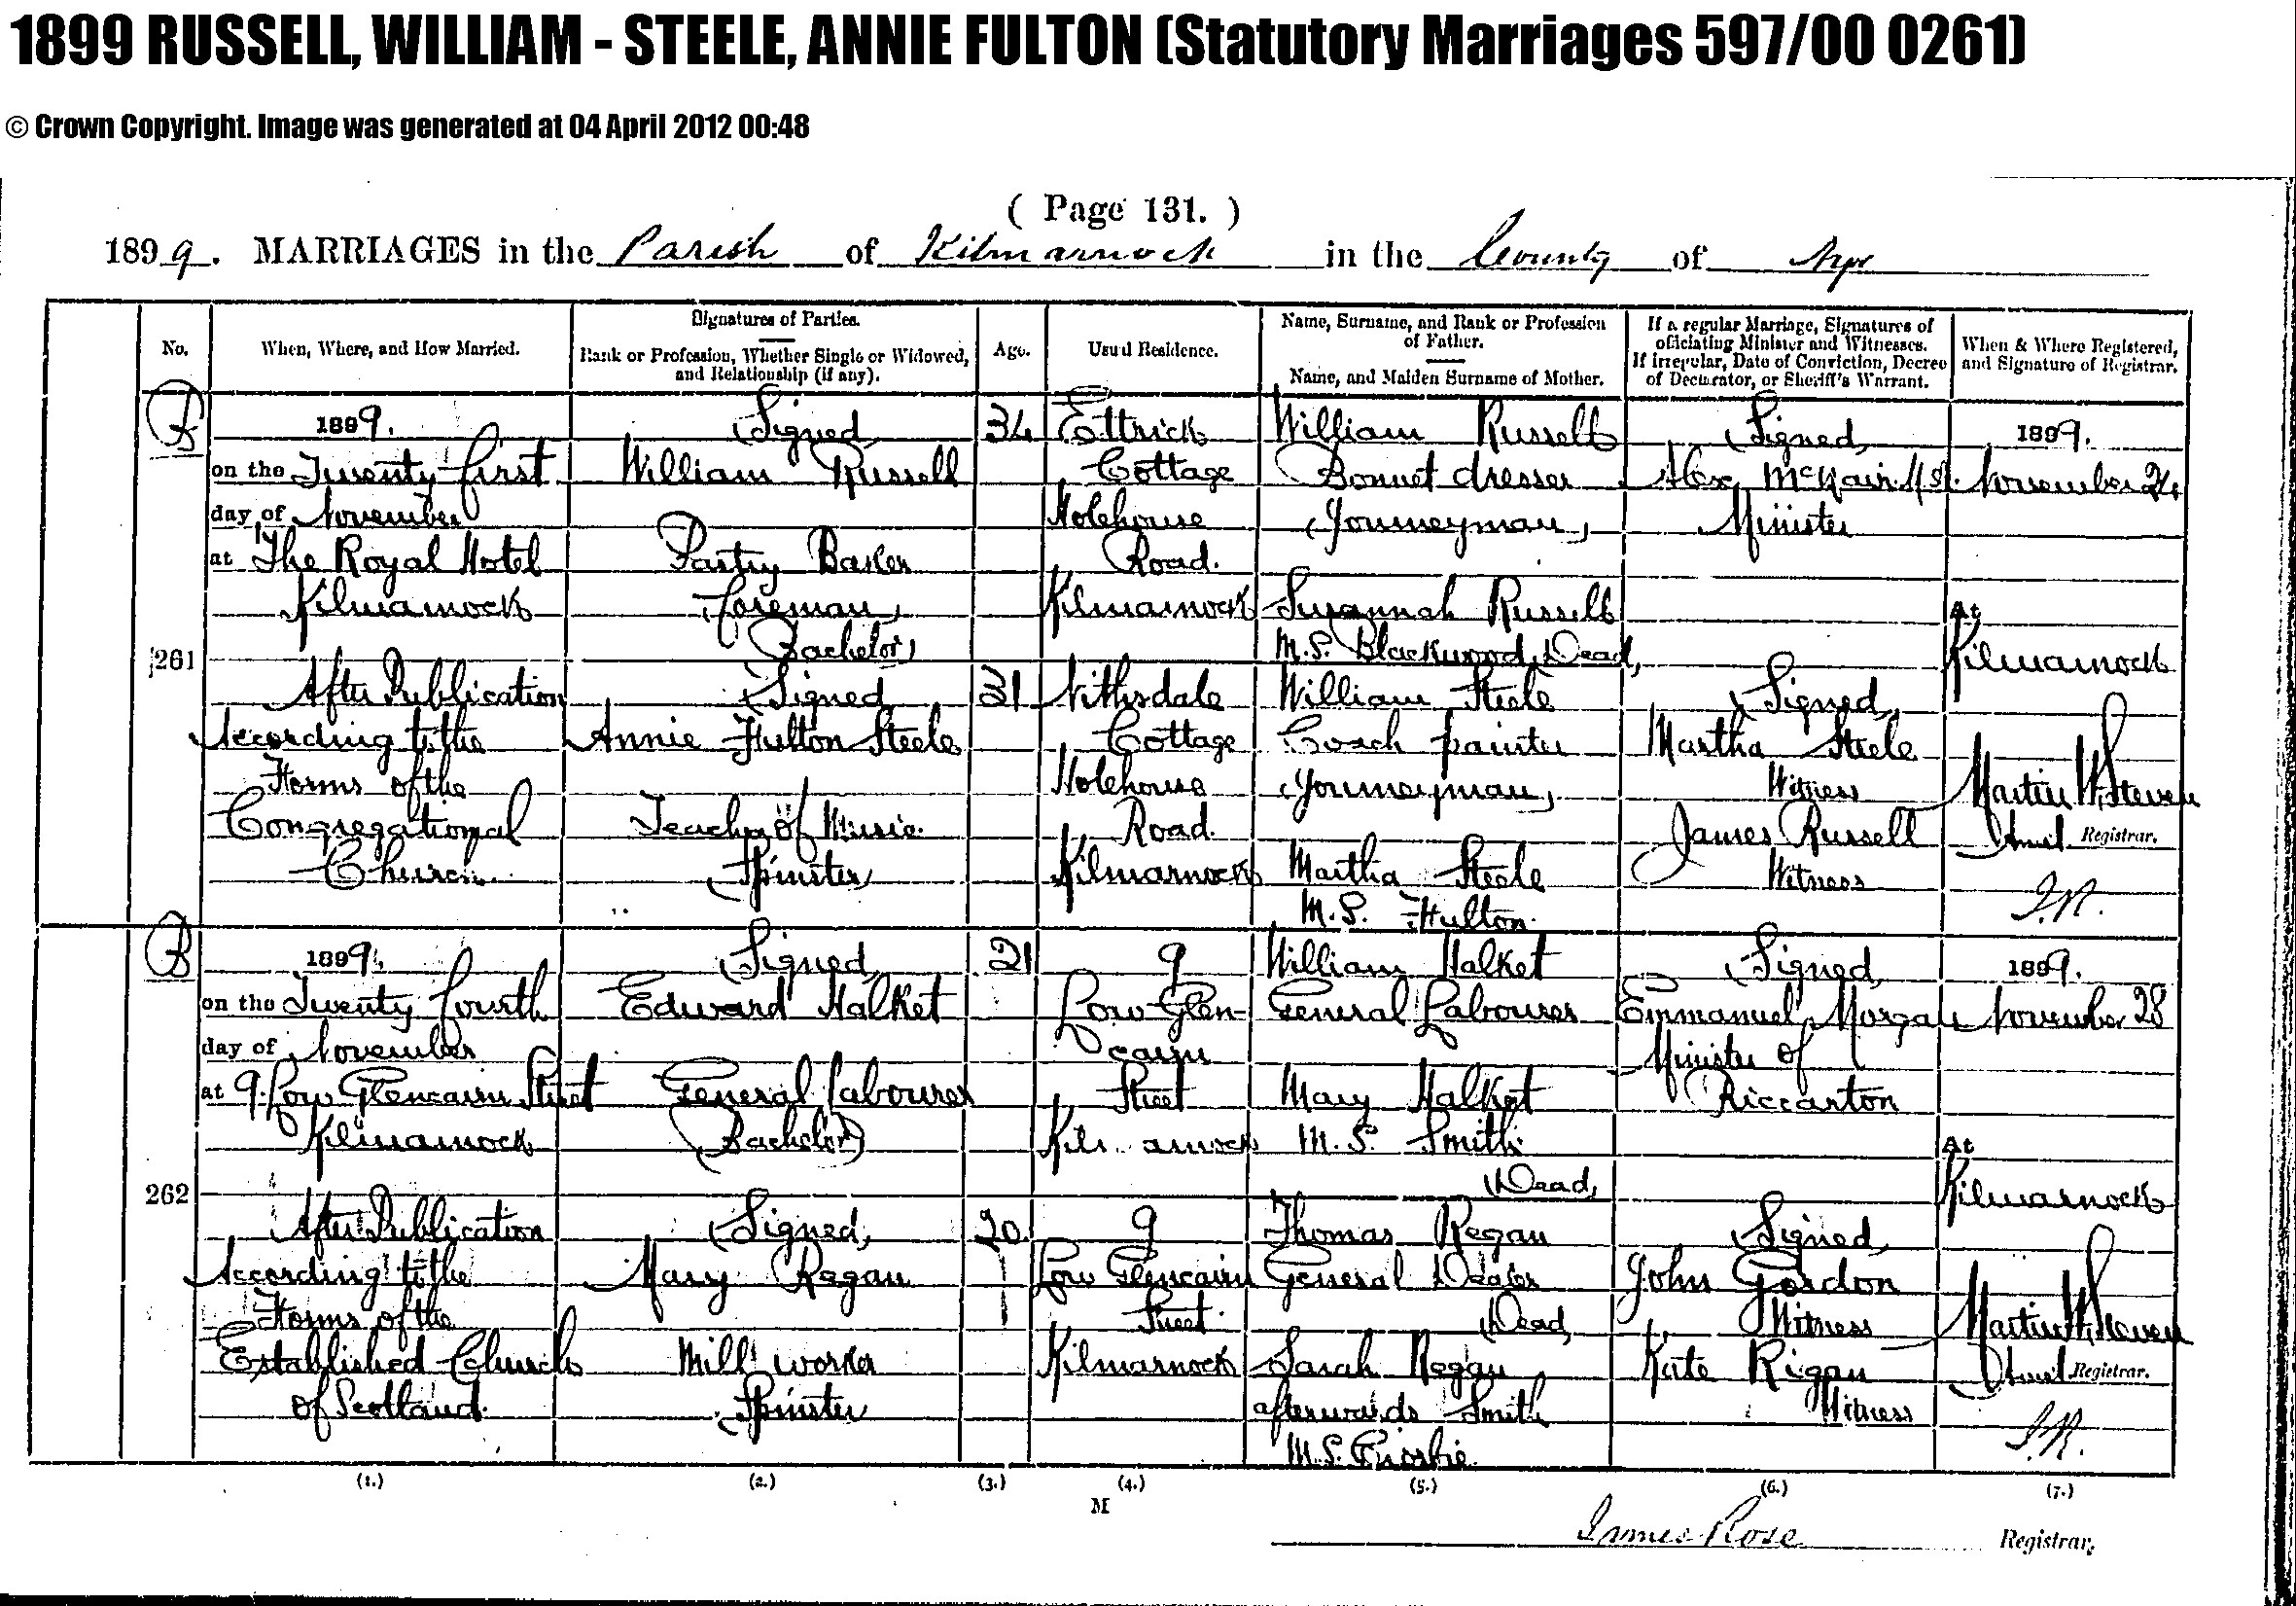 1899 RUSSELL, WILLIAM - STEELE, ANNIE FULTON (Statutory Marriages 597/00 0261)
© Crown Copyright. Image was generated at 04 April 2012 00:48
( Page 131. )
1899. MARRIAGES in the Parish of Kilmarnock in the County of Ayr
No.
When, Where, and How Married.
Signatures of Parties.
Rank or Profession, Whether Single or Widowed,
and Relationship (if any).
Age.
Usual Residence.
Name, Surname, and Rank or Profession
of Father.
Name, and Maiden Surname of Mother.
If a regular Marriage, Signatures of
officiating Minister and Witnesses.
If irregular, Date of Conviction, Decree
of Declarator, or Sheriff's Warrant.
When & Where Registered,
and Signature of Registrar.
261
1899.
on the Twenty first
day of November
at The Royal Hotel
Kilmarnock
After Publication
According to the
Forms of the
Congregational
Church.
(Signed)
William Russell
Pastry Baker
(Foreman)
(Bachelor)
(Signed)
Annie Fulton Steele
Teacher of Music
(Spinster)
34
31
Ettrick
Cottage
Holehouse
Road.
Kilmarnock
Nithsdale
Cottage
Holehouse
Road.
Kilmarnock
William Russell
Bonnet dresser
(Journeyman)
Susannah Russell
M.S. Blackwood (Dead)
William Steele
Coach painter
(Journeyman)
Martha Steele
M.S. Fulton.
(Signed)
Alex McNair
Minister
(Signed)
Martha Steele
Witness
James Russell
Witness
1899.
November 24
At
Kilmarnock
Martin W. Steven
Assist Registrar.
J.R.
262
1899.
on the Twenty fourth
day of November
at 9 Low Glencairn Street
Kilmarnock
After Publication
According to the
Forms of the
Established Church
of Scotland.
(Signed)
Edward Halket
General Labourer
(Bachelor)
(Signed)
Mary Regan
Mill worker
(Spinster)
21
20
9
Low Glen-
cairn
Street
Kilmarnock
9
Low Glencairn
Street.
Kilmarnock
William Halket
General Labourer
Mary Halket
M.S. Smith
(Dead)
Thomas Regan
General Dealer
(Dead)
Sarah Regan
afterwards Smith
M.S.
(Signed)
Emmanuel Morgan
Minister of
Riccarton
(Signed)
John Gordon
Witness
Kate Rigan
Witness
1899.
November 28
At
Kilmarnock
Martin W. Steven
Assist Registrar.
J.R.
(1.) (2.) (3.) (4.) (5.) (6.) (7.)
M
James Rose Registrar.